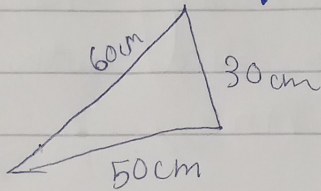 60cm
30cm
50cm